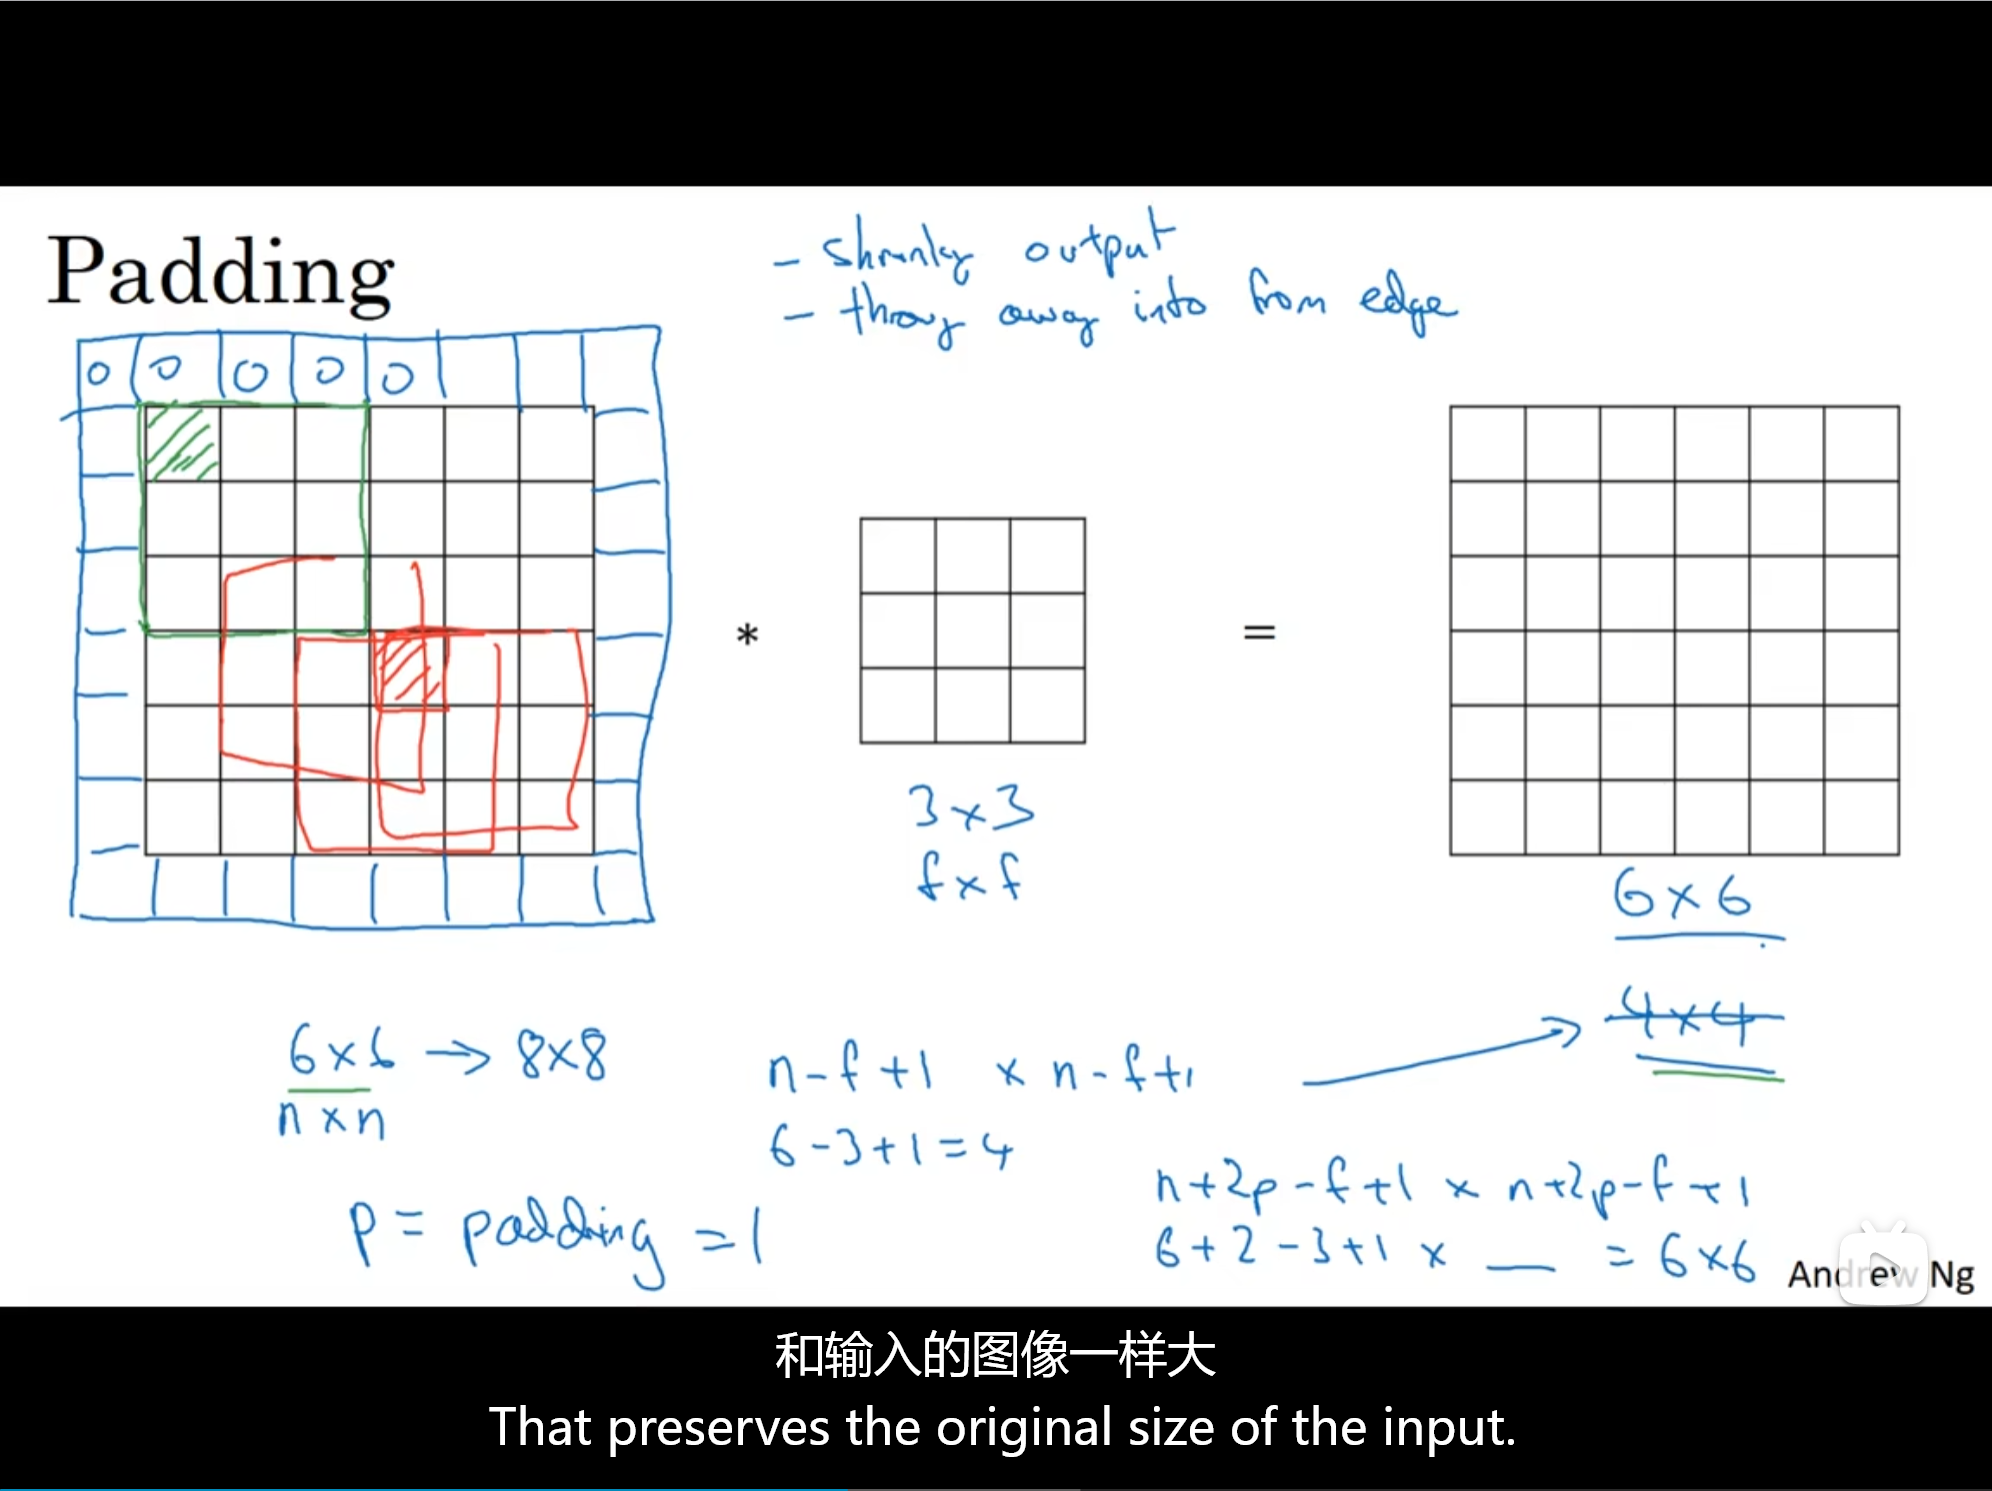 Padding
- shrinky output
- throwy away info from edge
0 0 0 0 0
*
=
3 x 3
f x f
6 x 6
4 x 4
6 x 6 → 8 x 8
n x n
n - f + 1 x n - f + 1
6 - 3 + 1 = 4
p = padding = 1
n + 2p - f + 1 x n + 2p - f + 1
6 + 2 - 3 + 1 x __ = 6 x 6
Andrew Ng
和输入的图像一样大
That preserves the original size of the input.